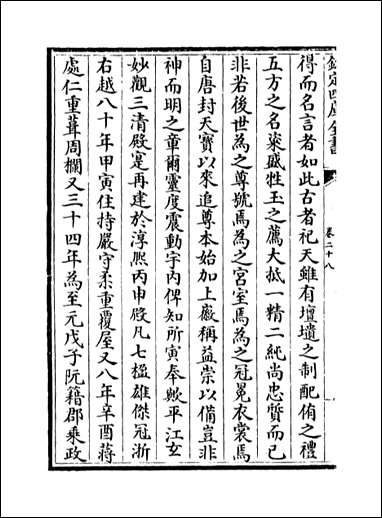 欽定四庫全書
卷二十八
得而名言者如此古者祀天雖有壇壝之制配侑之禮
五方之名粢盛牲玉之薦大抵一精二純尚忠質而已
非若後世為之尊號焉為之宮室焉為之冠冕衣裳焉
自唐封天寶以來追尊本始加上徽稱益崇以備豈非
神而明之章爾靈度震動宇内俾知所寅奉歟平江玄
妙觀三清殿寔再建於淳熙丙申殿凡七楹雄傑冠浙
右越八十年甲寅住持嚴守柔重覆屋又八年辛酉蔣
處仁重葺周欄又三十四年為至元戊子阮籍郡乘政